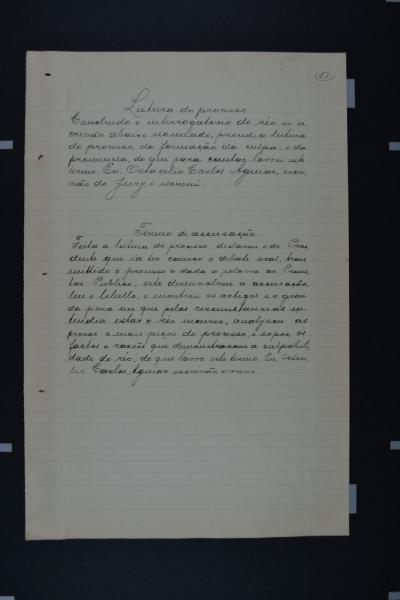 51
Leitura do processo
Concluido o interrogatorio do réo, eu es
crivão abaixo nomeado, procedi a leitura
do processo, da formação da culpa, e da
pronuncia, do que para constar lavrei este
termo. Eu, Octacilio Carlos Aguiar, escri
vão do Jury, o escrevi.
Termo de accusação
Feita a leitura do processo, declarou o Dr Presi
dente que ia ter começo o debate oral,
mettido o processo e dada a palavra ao Promo
tor Publico, este desenvolveu a accusação,
leu o libello, e mostrou os artigos e o gráo
da pena em que pelas circumstancias en
tendia estar o réo incurso, analysou as
provas e mais peças do processo, e expoz os
factos e razões que demonstravam a culpabili
dade do réo; do que lavro este termo. Eu Octaci
lio Carlos Aguiar escrivão, o escrevi